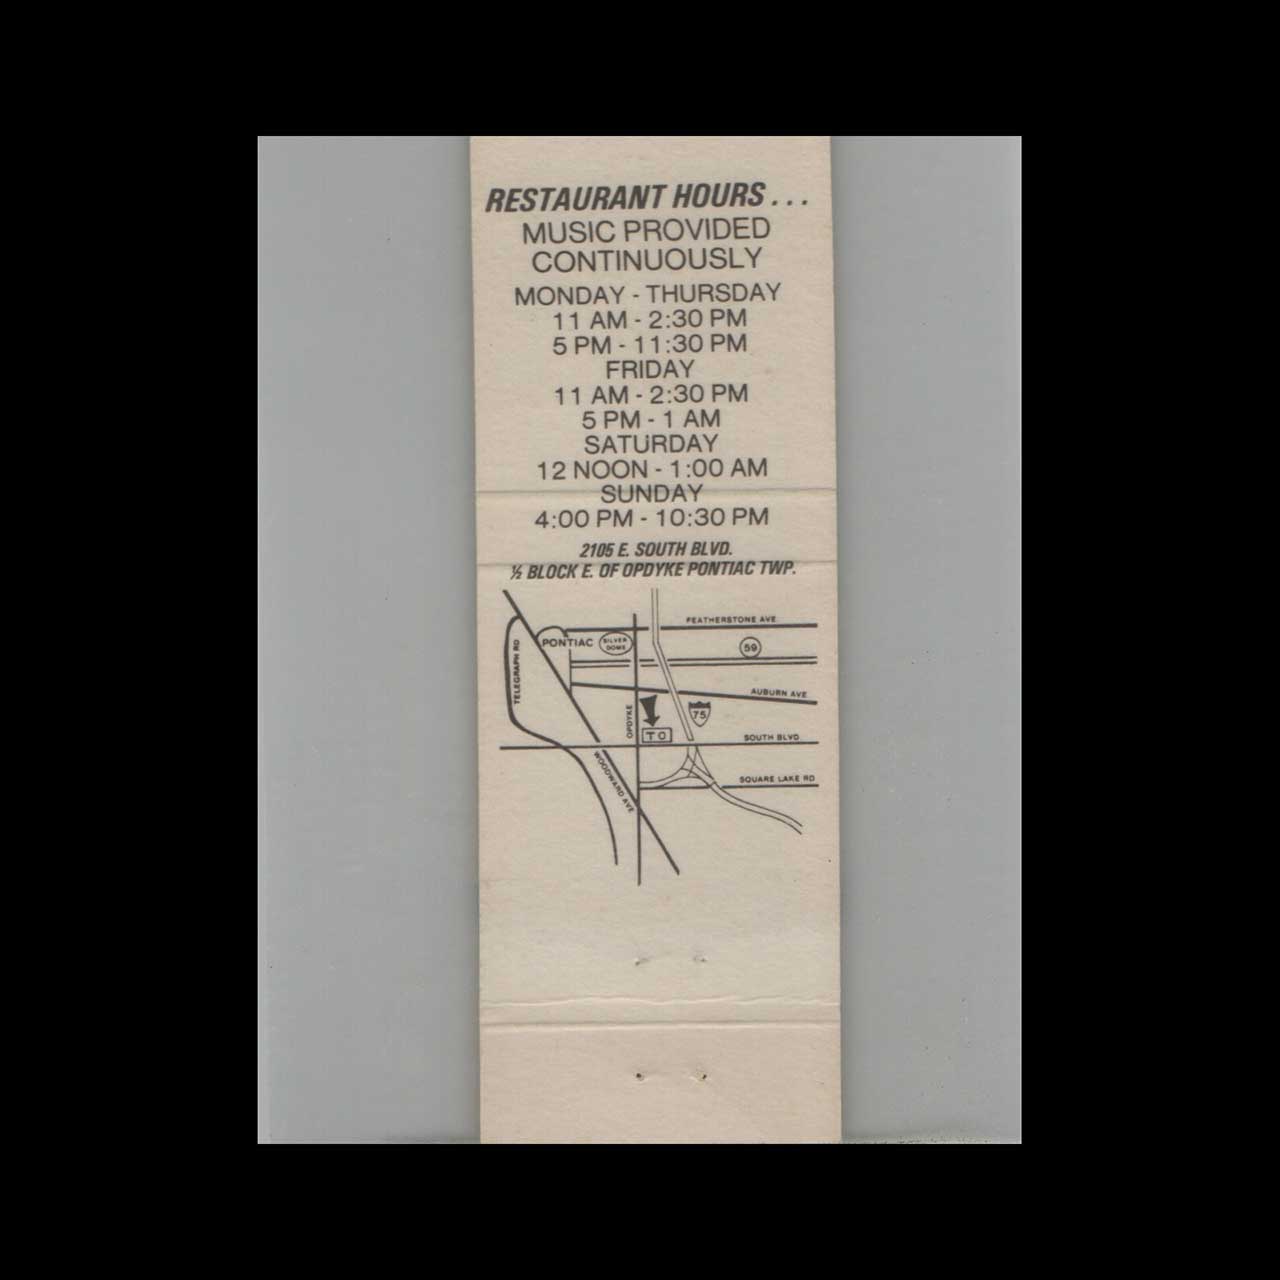 RESTAURANT HOURS . . .
MUSIC PROVIDED
CONTINUOUSLY
MONDAY - THURSDAY
11 AM - 2:30 PM
5 PM - 11:30 PM
FRIDAY
11 AM - 2:30 PM
5 PM - 1 AM
SATURDAY
12 NOON - 1:00 AM
SUNDAY
4:00 PM - 10:30 PM
2105 E. SOUTH BLVD.
½ BLOCK E. OF OPDYKE PONTIAC TWP.
FEATHERSTONE AVE.
PONTIAC
SILVER
DOME
59
TELEGRAPH RD
AUBURN AVE
OPDYKE
75
T C
SOUTH BLVD.
WOODWARD AVE
SQUARE LAKE RD